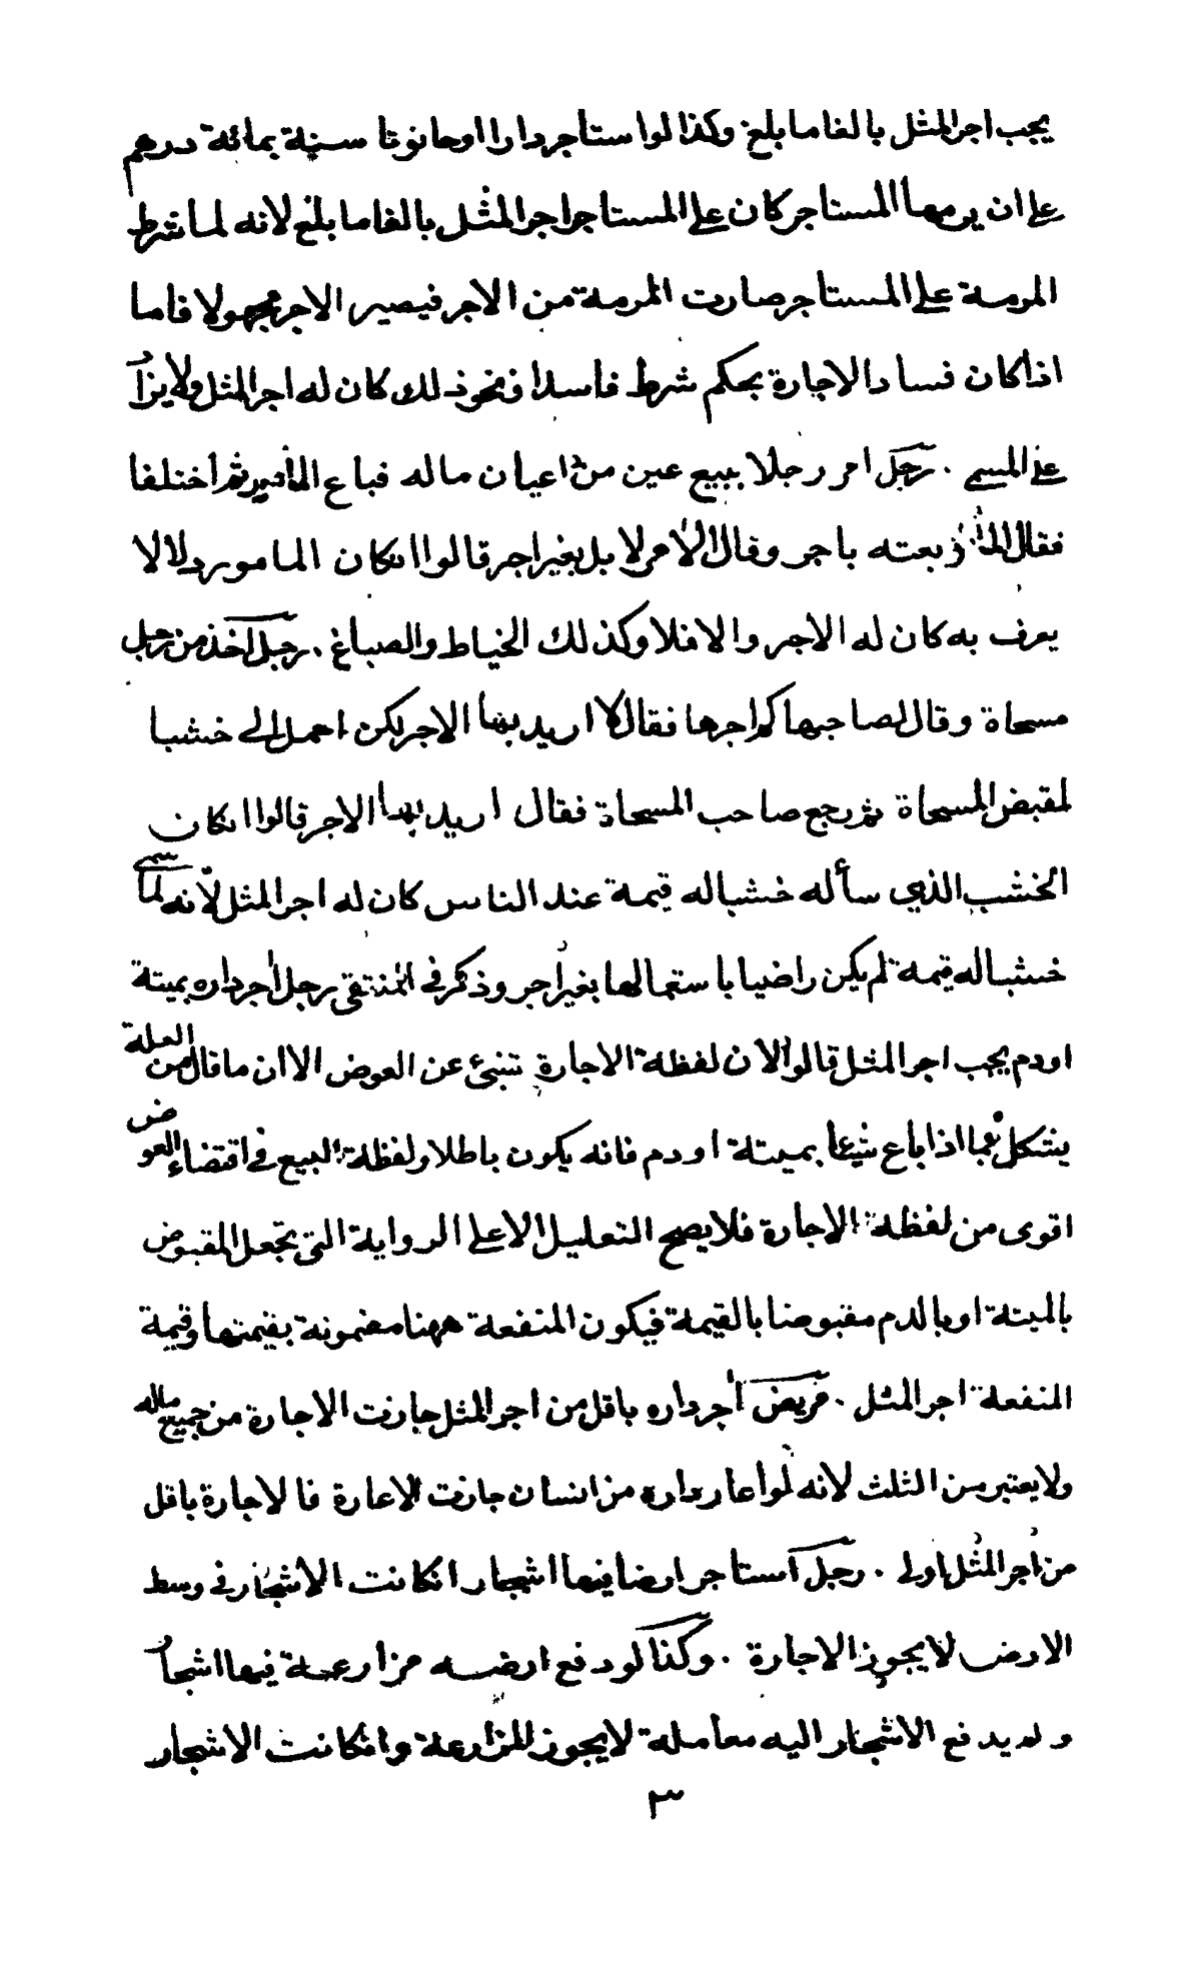 يجب اجر المثل بالغا ما بلغ وكذا لو استاجر دارا او حانوتا سنة بمائة درهم
على ان يرمها المستاجر كان على المستاجر اجر المثل بالغا ما بلغ لانه لما شرط
المرمة على المستاجر صارت المرمة من الاجر فيصير الاجر مجهولا فاما
اذا كان فساد الاجارة بحكم شرط فاسد او نحو ذلك كان له اجر المثل ولا يزاد
على المسمى . رجل امر رجلا ببيع عين من اعيان ماله فباع المامور ثم اختلفا
فقال المامور بعته باجر وقال الآمر لا بل بغير اجر قالوا انكان المامور دلالا
يعرف به كان له الاجر والا فلا وكذلك الخياط والصباغ . رجل اخذ من رجل
مسحاة وقال لصاحبها كم اجرها فقال لا اريد بها الاجر لكن احمل لي خشبا
لمقبض المسحاة ثم رجع صاحب المسحاة فقال اريد بها الاجر قالوا انكان
الخشب الذي سأله خشبا له قيمة عند الناس كان له اجر المثل لانه لما سمى
خشبا له قيمة لم يكن راضيا باستعمالها بغير اجر وذكر في المنتقى رجل اجر داره بميتة
او دم يجب اجر المثل قالوا لان لفظة الاجارة تنبئ عن العوض الا ان ما قال من العلة
يشكل بما اذا باع شيئا بميتة او دم فانه يكون باطلا ولفظة البيع في اقتضاء العوض
اقوى من لفظة الاجارة فلا يصح التعليل الا على الرواية التي تجعل المقبوض
بالميتة او بالدم مقبوضا بالقيمة فيكون المنفعة ههنا مضمونة بقيمتها وقيمة
المنفعة اجر المثل . مريض أجر داره باقل من اجر المثل جازت الاجارة من جميع ماله
ولا يعتبر من الثلث لانه لو اعار داره من انسان جازت الاعارة فالاجارة باقل
من اجر المثل اولى . رجل استاجر ارضا فيها اشجار انكانت الاشجار في وسط
الارض لا يجوز الاجارة . وكذا لو دفع ارضه مزارعة فيها اشجار
ولم يدفع الاشجار اليه معاملة لا يجوز المزارعة وانكانت الاشجار
٣